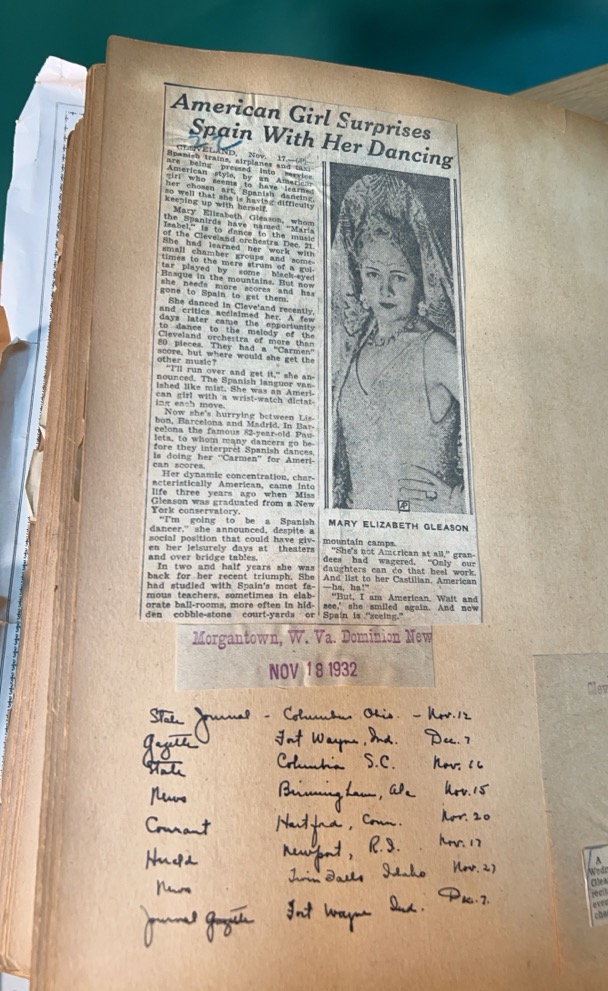 American Girl Surprises
Spain With Her Dancing
CLEVELAND, Nov. 17.—(P)—
Spanish trains, airplanes and taxi-
are being pressed into service,
American style, by an American
girl who seems to have learned
her chosen art, Spanish dancing,
so well that she is having difficulty
keeping up with herself.
Mary Elizabeth Gleason, whom
the Spanirds have named "Maria
Isabel," is to dance to the music
of the Cleveland orchestra Dec. 21.
She had learned her work with
small chamber groups and some-
times to the mere strum of a gui-
tar played by some black-eyed
Basque in the mountains. But now
she needs more scores and has
gone to Spain to get them.
She danced in Cleveland recently,
and critics acclaimed her. A few
days later came the opportunity
to dance to the melody of the
Cleveland orchestra of more than
80 pieces. They had a "Carmen"
score, but where would she get the
other music?
"I'll run over and get it," she an-
nounced. The Spanish languor van-
ished like mist. She was an Ameri-
can girl with a wrist-watch dictat-
ing each move.
Now she's hurrying between Lis-
bon, Barcelona and Madrid. In Bar-
celona the famous 82-year-old Pau-
lets, to whom many dancers go be-
fore they interpret Spanish dances,
is doing her "Carmen" for Ameri-
can scores.
Her dynamic concentration, char-
acteristically American, came into
life three years ago when Miss
Gleason was graduated from a New
York conservatory.
"I'm going to be a Spanish
dancer," she announced, despite a
social position that could have giv-
en her leisurely days at theaters
and over bridge tables.
In two and half years she was
back for her recent triumph. She
had studied with Spain's most fa-
mous teachers, sometimes in elab-
orate ball-rooms, more often in hid-
den cobble-stone court-yards or
AP
MARY ELIZABETH GLEASON
mountain camps.
"She's not American at all," gran-
dees had wagered. "Only our
daughters can do that heel work.
And list to her Castilian. American
—ha, ha!"
"But, I am American. Wait and
see,' she smiled again. And now
Spain is "seeing."
Morgantown, W. Va. Dominion New
NOV 18 1932
State Journal - Columbus Ohio. - Nov. 12
Gazette Fort Wayne, Ind. Dec. 7
State Columbia S.C. Nov. 16
News Birmingham, Ala Nov. 15
Courant Hartford, Conn. Nov. 20
Herald Newport, R.I. Nov. 17
News Twin Falls Idaho Nov. 27
Journal Gazette Fort Wayne Ind. Dec. 7.
Clev
A
Wedn
Glea